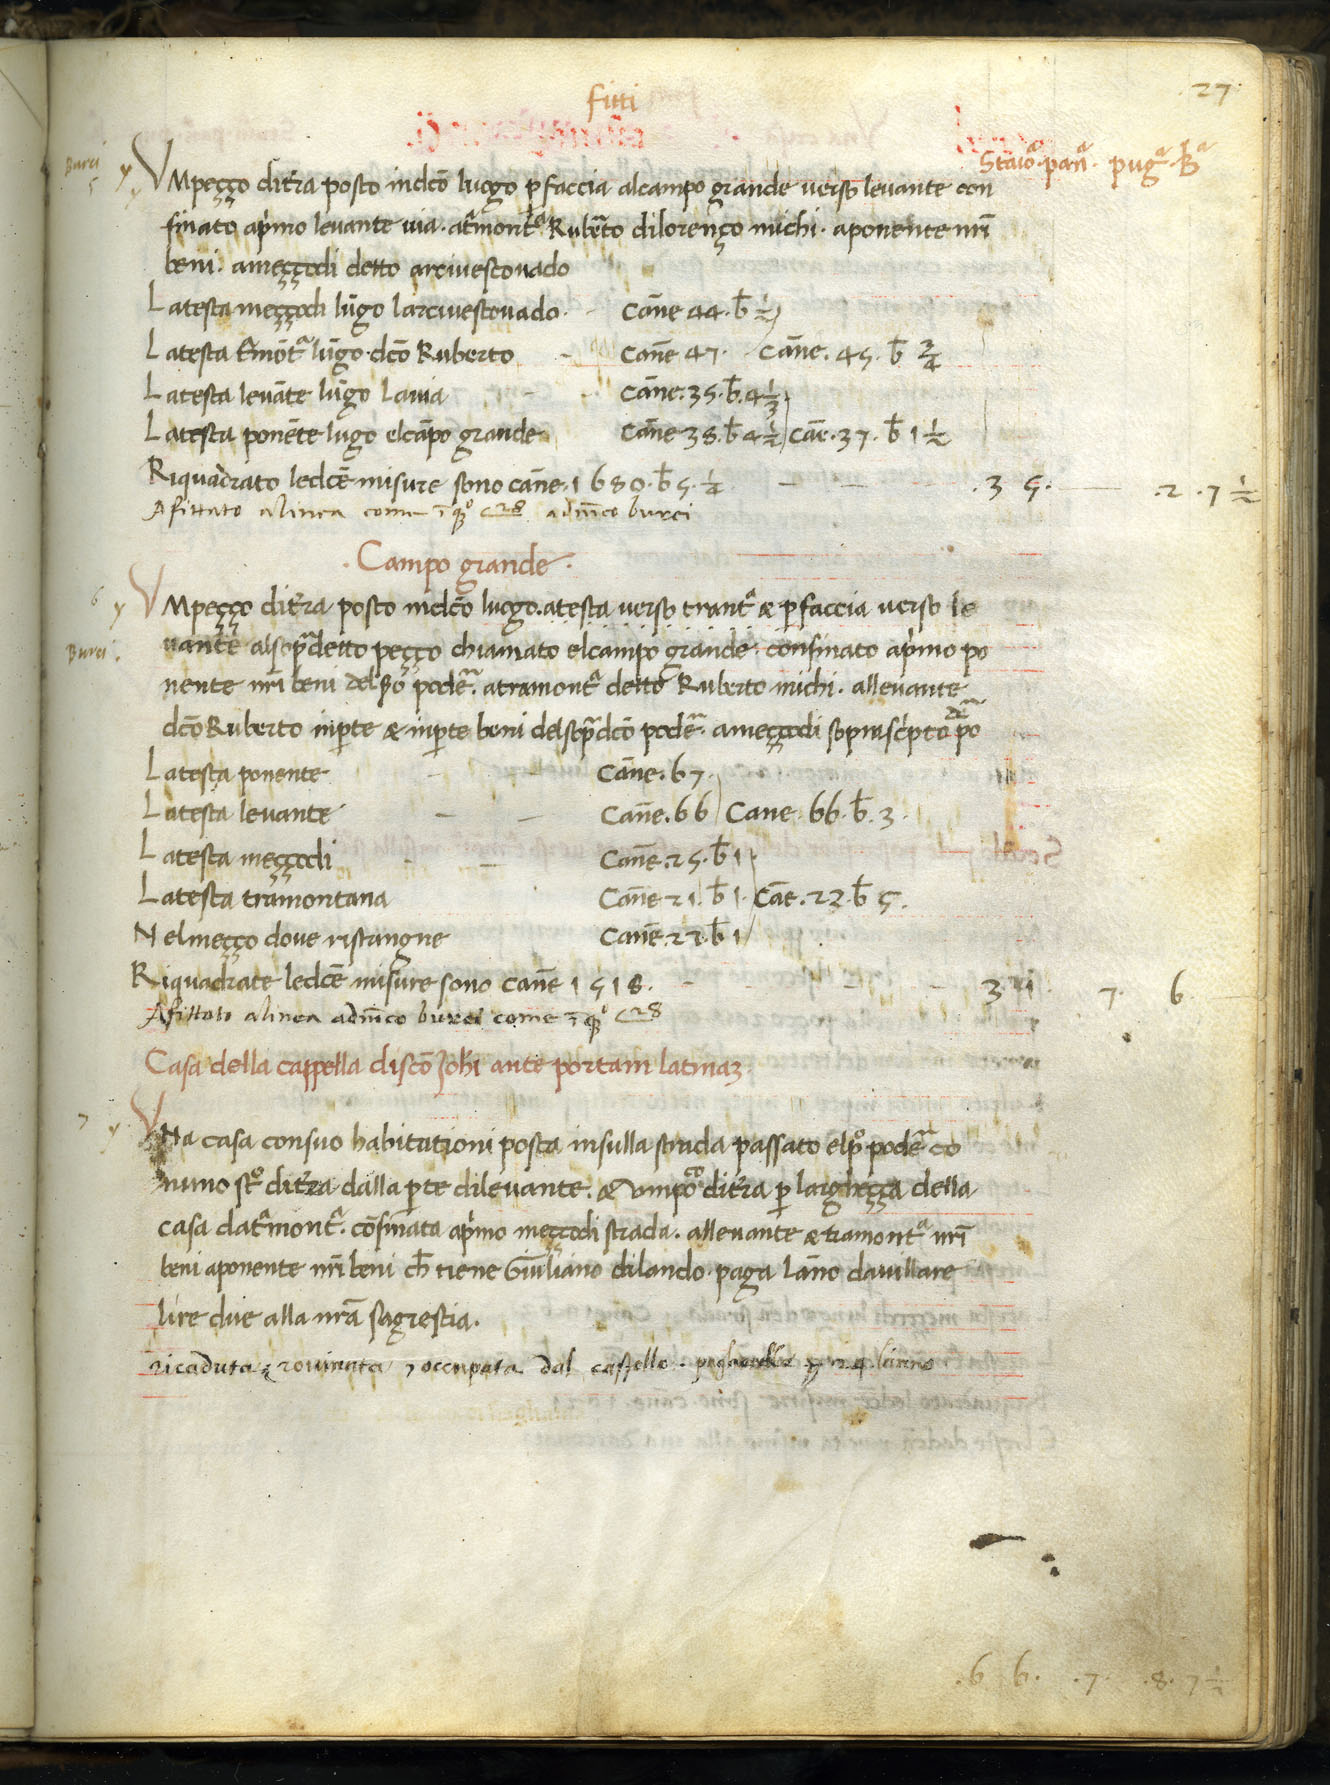 27
fitti
Staiõ. pañ. pug̃. B̃
Burci
5
y VMpeçço ditr̃a posto indcõ luogo p̱ faccia alcampo grande verso levante con
finato apr̃mo levante via. atr̃montª Rubẽto dilorenço michi. aponente nr̃i
beni. ameççodi detto arcivescovado
Latesta meççodi lũgo larcivescovado. Cãne 44. b̃ ½
Latesta tr̃mõtª lũgo dcõ Ruberto Cãne 47. Cãne. 45. b̃ ¾
Latesta levãte lũgo lavia Cãne. 35. b̃. 4 ⅓
Latesta ponẽte lũgo elcãpo grande Cãne 38. b̃ 4 ½ Cãe. 37. b̃ 1 ½
Riquadrato ledcẽ misure sono cãne. 1680. b̃ 5. ¼ . 3 5. .2 .7 ½
Afittato a linea come ĩ q̃º c 28 a dm̃co burci
. Campo grande .
6 y VMpeçço ditr̃a posto indcõ luogo. atesta verso tramtª & p̱ faccia verso le
Burci . vante alsop̃detto peçço chiamato elcampo grande. confinato apr̃mo po
nente nr̃i beni del podẽ. atramontª detto Ruberto michi. allevante
dcõ Ruberto inp̱te & inp̱te beni delsop̃dcõ podẽ. ameççodi soprascripto po
Latesta ponente Cãne. 67.
Latesta levante Cãne. 66 Cane. 66. b̃. 3.
Latesta meççodi Cãne. 25. b̃ 1
Latesta tramontana Cãne 21. b̃ 1. Cãe. 23. b̃ 5.
Nelmeçço dove ristrangne Cãne. 23. b̃ 1
Riquadrate ledcẽ misure sono cãne 1518. 3 1 . 7. 6
Afittato a linea a dm̃co burci come ĩ q̃º c 28
Casa della cappella discõ Johi ante portam latinaȝ
7 y VNa casa consuo habitationi posta insulla strada passato elpº podẽ co
nuno stº ditr̃a dalla p̱te dilevante. & umpoco ditr̃a p̱ largheçça della
casa datr̃montª. cõfinata apr̃mo meççodi strada. allevante & tramontª nr̃i
beni aponente nr̃i beni ch̃ tiene Giuliano dilando. paga lãno davillare
lire due alla nr̃a sagrestia.
ricaduta e rovinata e occupata dal castello. 24 lanno
. 6 6. .7. .8. 7 ½